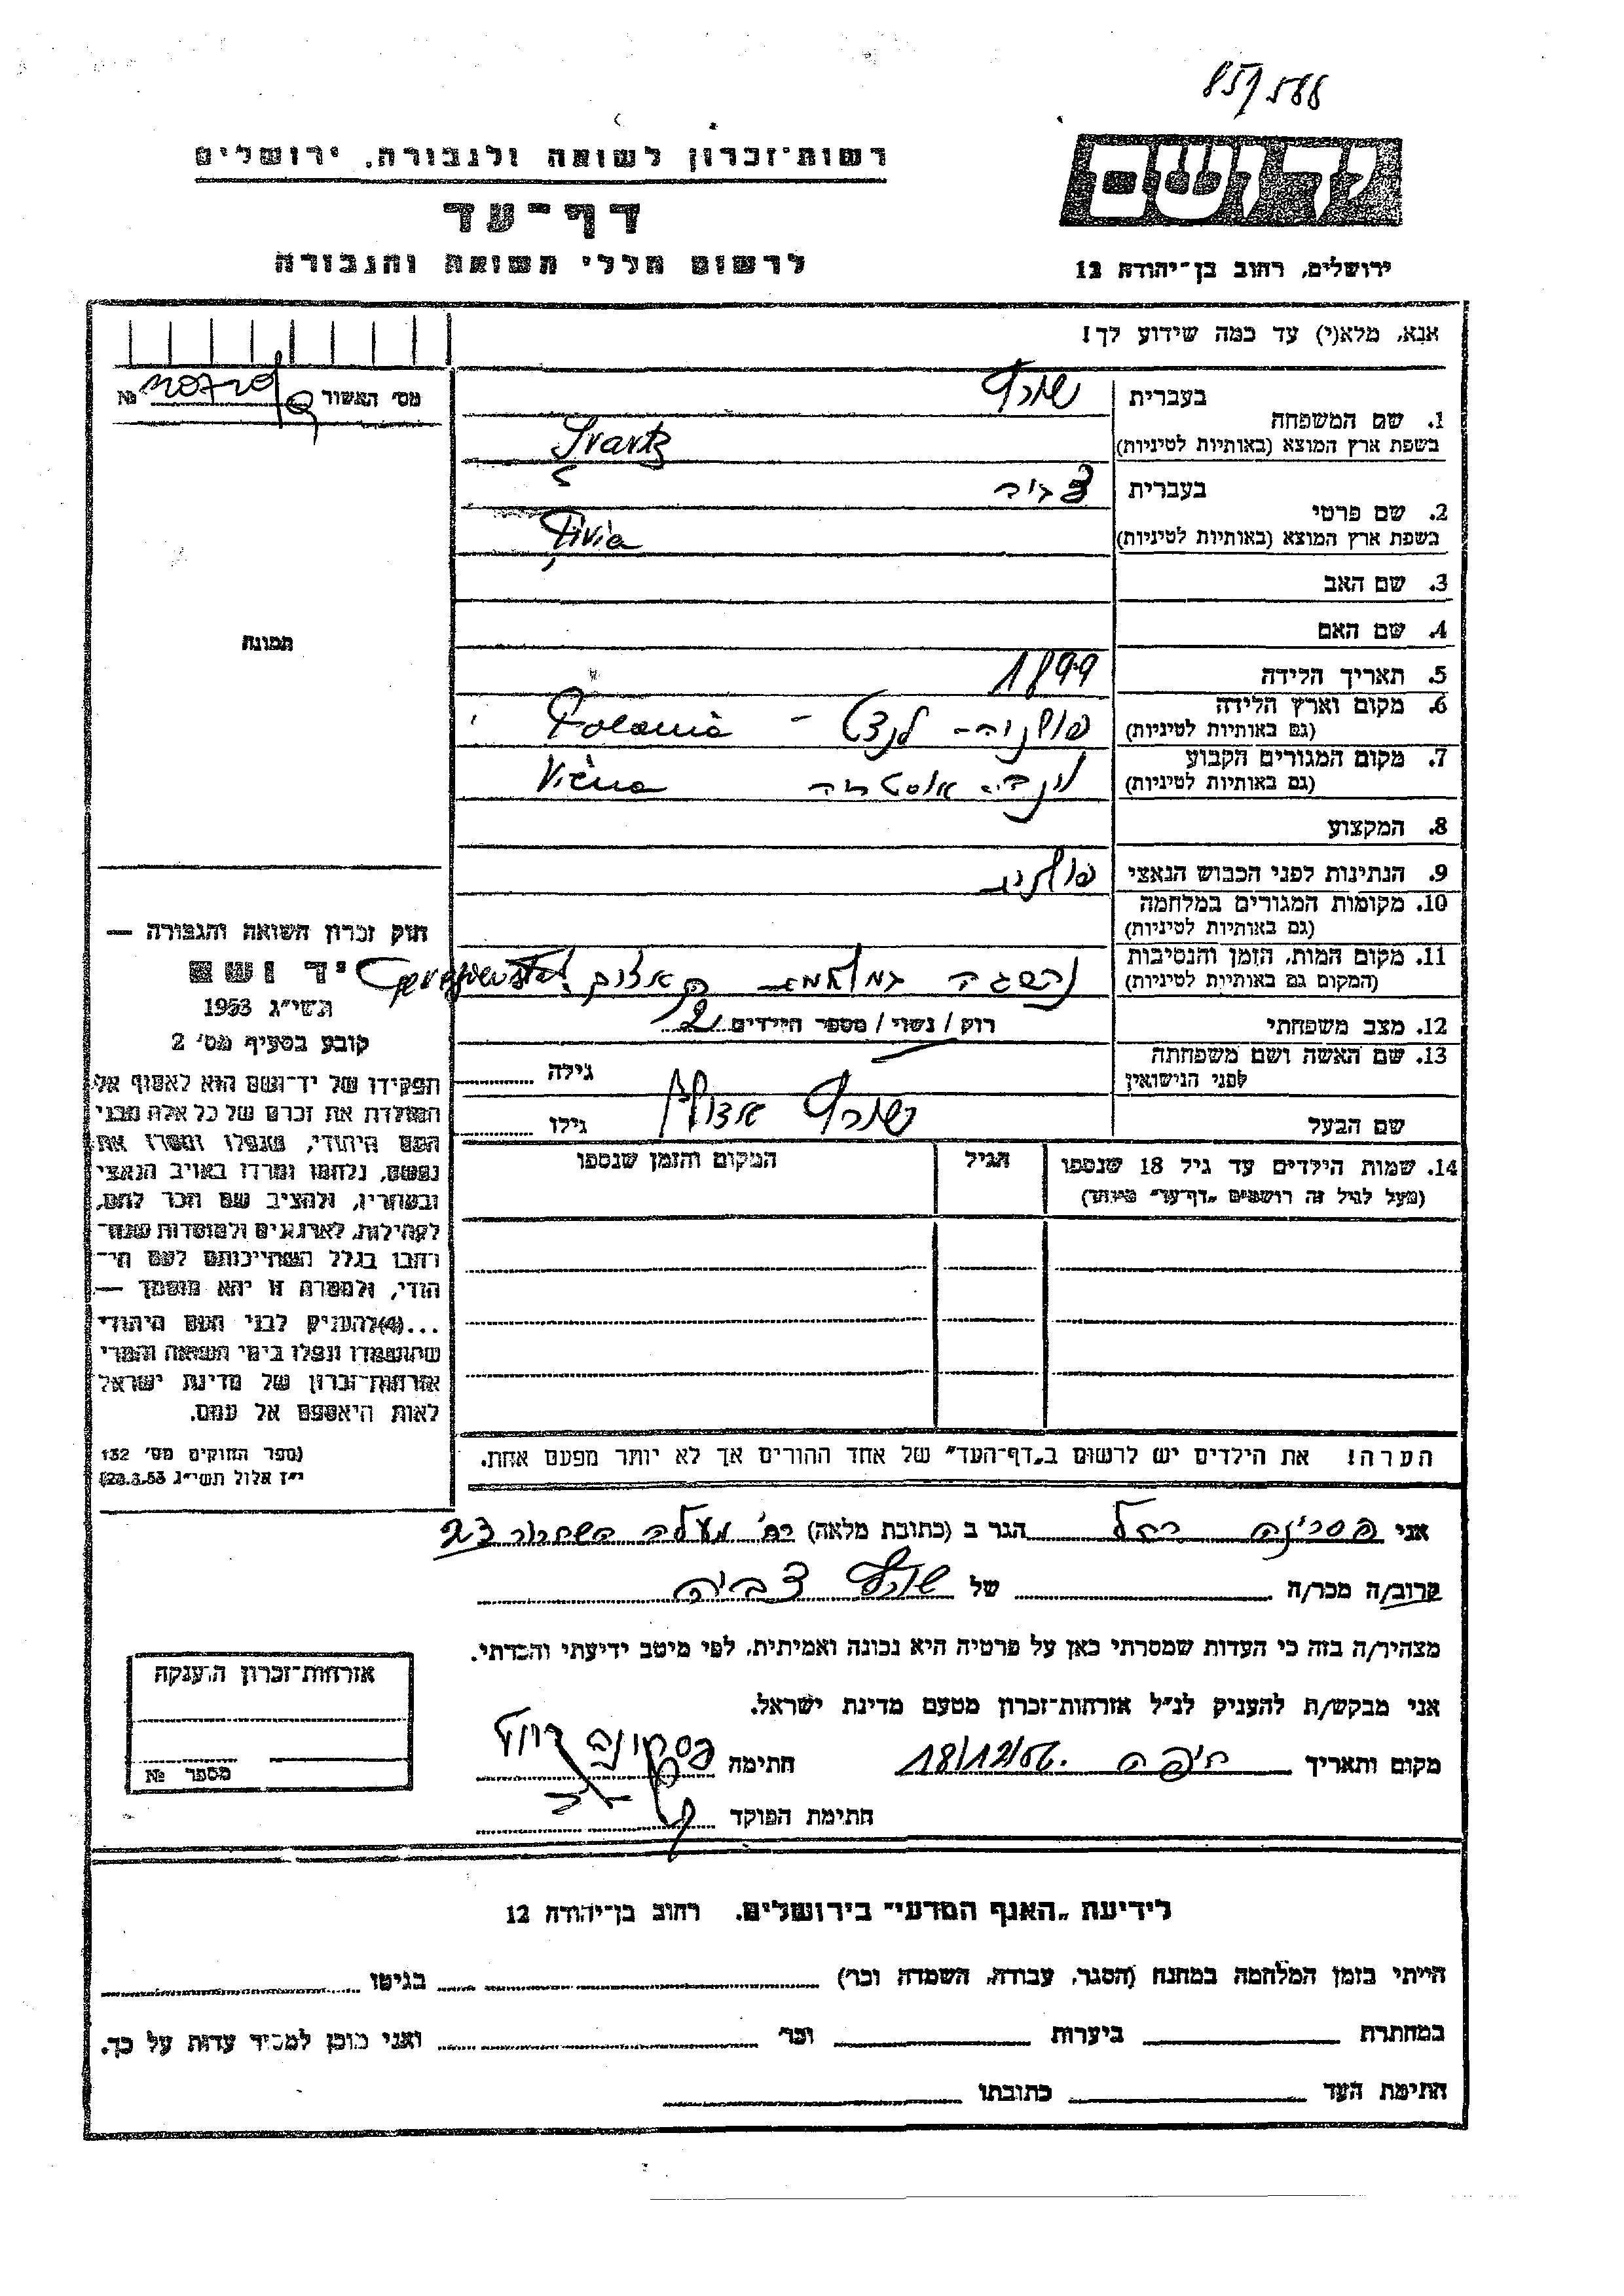 851/588
רשות־זכרון לשואה ולגבורה, ירושלים
ידושם
דף־עד
לרשום חללי השואה והגבורה
ירושלים, רחוב בן־יהודה 12
אנא, מלא(י) עד כמה שידוע לך!
מס' האשור №
בעברית שורץ
1. שם המשפחה
בשפת ארץ המוצא (באותיות לטיניות) Svartz
בעברית צביה
2. שם פרטי
בשפת ארץ המוצא (באותיות לטיניות) Ţivia
3. שם האב
4. שם האם
תמונה
5. תאריך הלידה 1899
6. מקום וארץ הלידה
(גם באותיות לטיניות) פולניה - - Polania
7. מקום המגורים הקבוע
(גם באותיות לטיניות) וינה אוסטריה Viena
8. המקצוע
9. הנתינות לפני הכבוש הנאצי פולנית
10. מקומות המגורים במלחמה
(גם באותיות לטיניות)
11. מקום המות, הזמן והנסיבות
(המקום גם באותיות לטיניות) נהרגה במלחמה
12. מצב משפחתי רווק / נשוי / מספר הילדים 2
13. שם האשה ושם משפחתה
לפני הנישואין גילה
שם הבעל שורץ אדולף גילו
14. שמות הילדים עד גיל 18 שנספו הגיל המקום והזמן שנספו
(מעל לגיל זה רושמים „דף־עד" מיוחד)
חוק זכרון השואה והגבורה —
יד ושם
תשי"ג 1953
קובע בסעיף מס' 2
תפקידו של יד־ושם הוא לאסוף אל
המולדת את זכרם של כל אלה מבני
העם היהודי, שנפלו ומסרו את
נפשם, נלחמו ומרדו באויב הנאצי
ובעוזריו, ולהציב שם וזכר להם,
לקהילות, לארגונים ולמוסדות שנח־
רבו בגלל השתייכותם לעם הי־
הודי, ולמטרה זו יהא מוסמך —
...(4) להעניק לבני העם היהודי
שהושמדו ונפלו בימי השואה והמרי
אזרחות־זכרון של מדינת ישראל
לאות היאספם אל עמם.
(ספר החוקים מס' 132
י"ז אלול תשי"ג 28.8.53)
הערה! את הילדים יש לרשום ב„דף־העד" של אחד ההורים אך לא יותר מפעם אחת.
אני רחל הגר ב (כתובת מלאה) רח' מעלה השחרור 23
קרוב/ה מכר/ה של שורץ צביה
מצהיר/ה בזה כי העדות שמסרתי כאן על פרטיה היא נכונה ואמיתית, לפי מיטב ידיעתי והכרתי.
אני מבקש/ת להעניק לנ"ל אזרחות־זכרון מטעם מדינת ישראל.
מקום ותאריך חיפה 18/12/56. חתימה
חתימת הפוקד
אזרחות־זכרון הוענקה
מספר №
לידיעת „האגף המדעי" בירושלים, רחוב בן־יהודה 12
הייתי בזמן המלחמה במחנה (הסגר, עבודה, השמדה וכו') בגיטו
במחתרת ביערות וכו' ואני מוכן למסור עדות על כך.
חתימת העד כתובתו